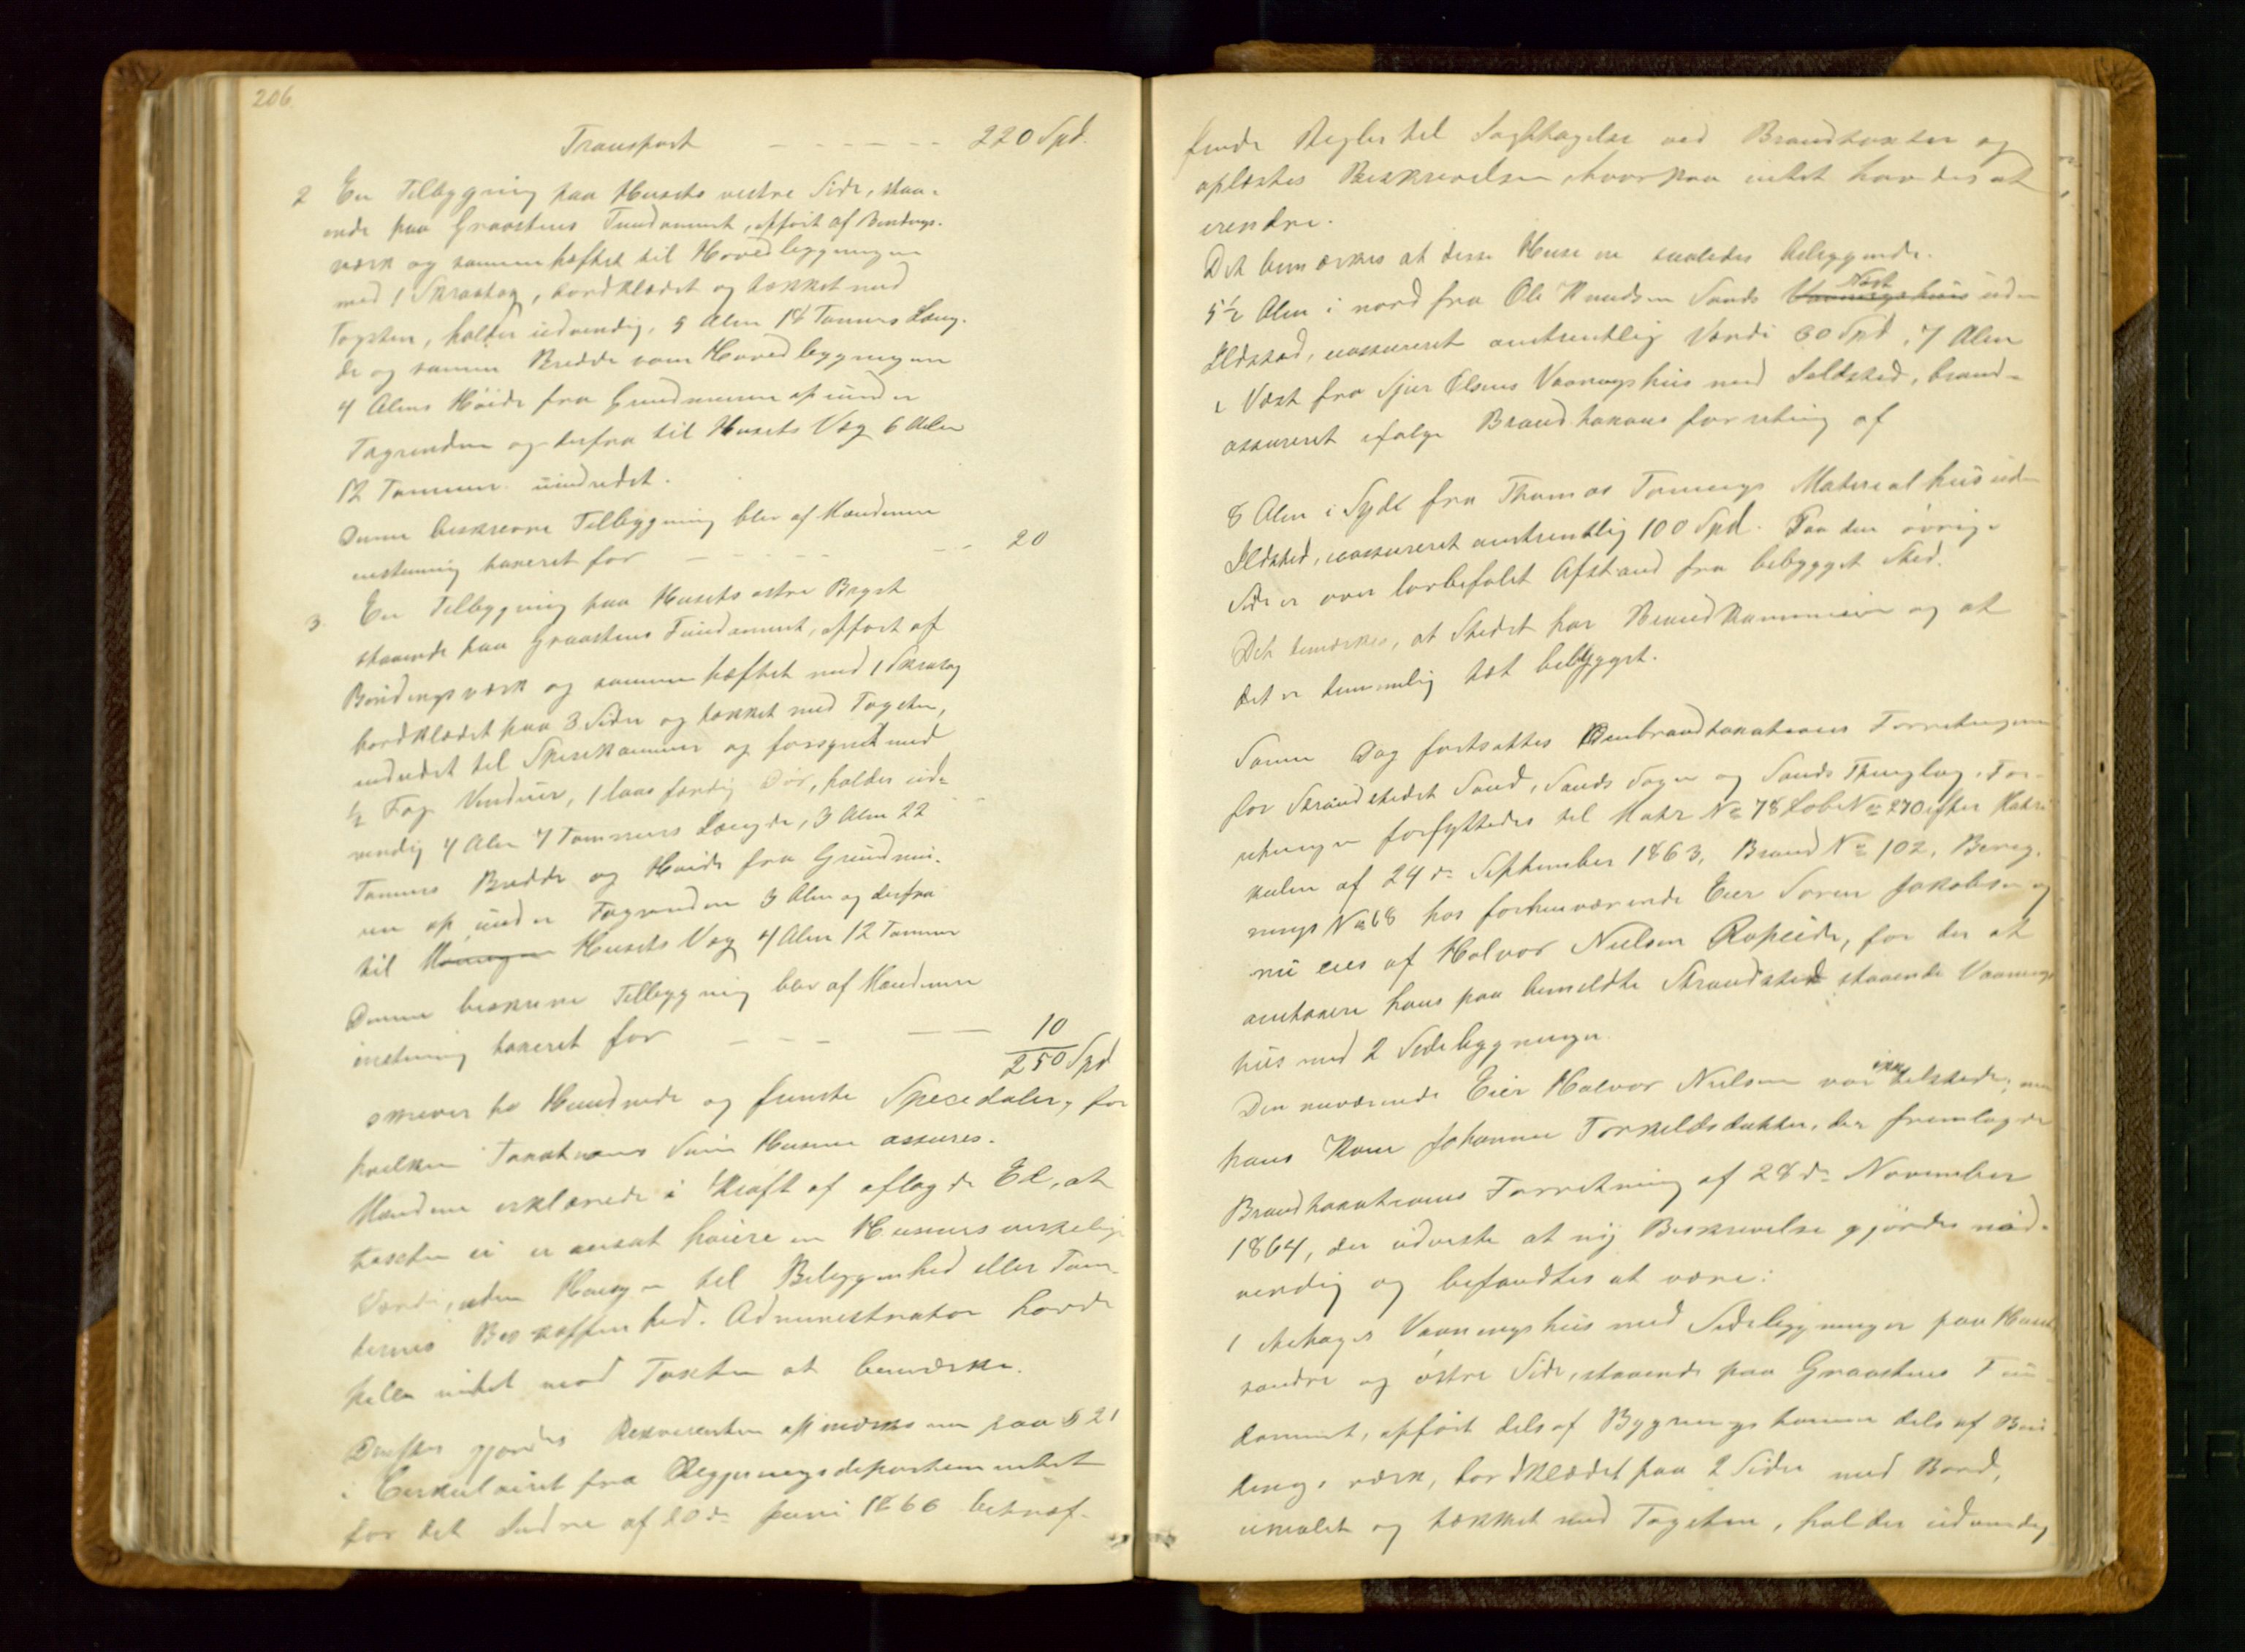 206.
Transport - - - - - - 220 Spd.
2 En Tilbygning paa Husets vestre Side, staa-
ende paa Graastens Fundament, opført af Bindings-
værk og sammenhæftet til Hovedbygningen
med 1 Skraatag, bordklædet og tækket med
Tagsten, holder udvendig, 5 Alen 18 Tommers Læng-
de og samme Bredde som Hovedbygningen
4 Alens Høide fra Grundmuren op under
Tagrenden og derfra til Husets Væg 6 Alen
12 Tommer uindredet.
Denne beskrevne Tilbygning blev af Mændene
enstemmig taxeret for - - - - - - - 20
3 En Tilbygning paa Husets østre Bryst
staaende paa Graastens Fundament, opført af
Bindingsværk og sammenhæftet med 1 Skratag
bordklædet paa 3 Sider og tækket med Tagsten,
indredet til Spisekammer og forsynet med
½ Fag Vinduer, 1 laasfærdig Dør, holder ud-
vendig 4 Alen 7 Tommers Længde, 3 Alen 22
Tommers Bredde og Høide fra Grundmu-
ren op under Tagrenden 3 Alen og derfra
til Husets Væg 4 Alen 12 Tommer
Denne beskrevne Tilbygning blev af Mændene
enstemmig taxeret for - - - - - 10
250 Spd
skriver to Hundrede og femti Speciedaler, for
hvilken Taxations Sum Husene assures.
Mændene erklærede i Kraft af aflagde Ed, at
taxten ei er ansat høiere en Husenes virkelige
Værdi, uden Hensyn til Beliggenhed eller Tom-
ternes Beskaffenhed. Administrator havde
heller intet mod Taxten at bemærke.
Derefter gjordes Rekvirenten opmærksom paa § 21
i Cirkulairet fra Regjeringsdepartementet
for det Indre af 20de Juni 1866 betræf-
fende Regler til Iagttagelse ved Brandtaxter og
oplæstes Beskrivelsen, hvorpaa intet havdes at
erendre.
Det bemærkes at disse Huse er saaledes beliggende.
5½ Alen i nord fra Ole Knudsen Sands Vaaningshuus Nøst uden
Ildsted, uassureret omtrentlig Værdi 60 Spd, 7 Alen
i Vest fra Sjur Olsens Vaaningshus med Ildsted, brand-
assureret ifølge Brandtaxationsforretning af
8 Alen i Syd fra Thomas Materialhus uden
Ildsted, uassureret omtrentlig 100 Spd. Paa den øvrige
Side er over lovbefalet Afstand fra bebygget Sted.
Det bemærkes, at Stedet har Brandkommission og at
det er temmelig tæt bebygget.
Samme Dag fortsattes Ombrandtaxations Forretningen
for Strandstedet Sand, Sands Sogn og Sands Thinglag. For-
retningen forflyttedes til Matr No 78 Løbe No 270 efter Matri-
kulen af 24de September 1863, Brand No 102, Bereg-
nings No 68 hos forhenværende Eier Søren Jakobsen og
nu eies af Halvor Nielsen Ropeide, for der at
omtaxere hans paa bemeldte Strandsted staaende Vaanings-
hus med 2 Sidebygninger.
Den nuværende Eier Halvor Nielsen var ikke tilstede, men
hans Kone Johanne Torkeldsdatter, der fremlagde
Brandtaxations Forretning af 28de November
1864, der udviste at ny Beskrivelse gjordes nød-
vendig og befandtes at være:
1 etetages Vaaningshus med Sidebygninger paa Husets
søndre og østre Side, staaende paa Graastens Fun-
dament, opført dels af Bygningstømmer dels af Bin-
dings værk, bordklædet paa 2 Sider med Bord,
umalet og tækket med Tagsten, holder udvendig